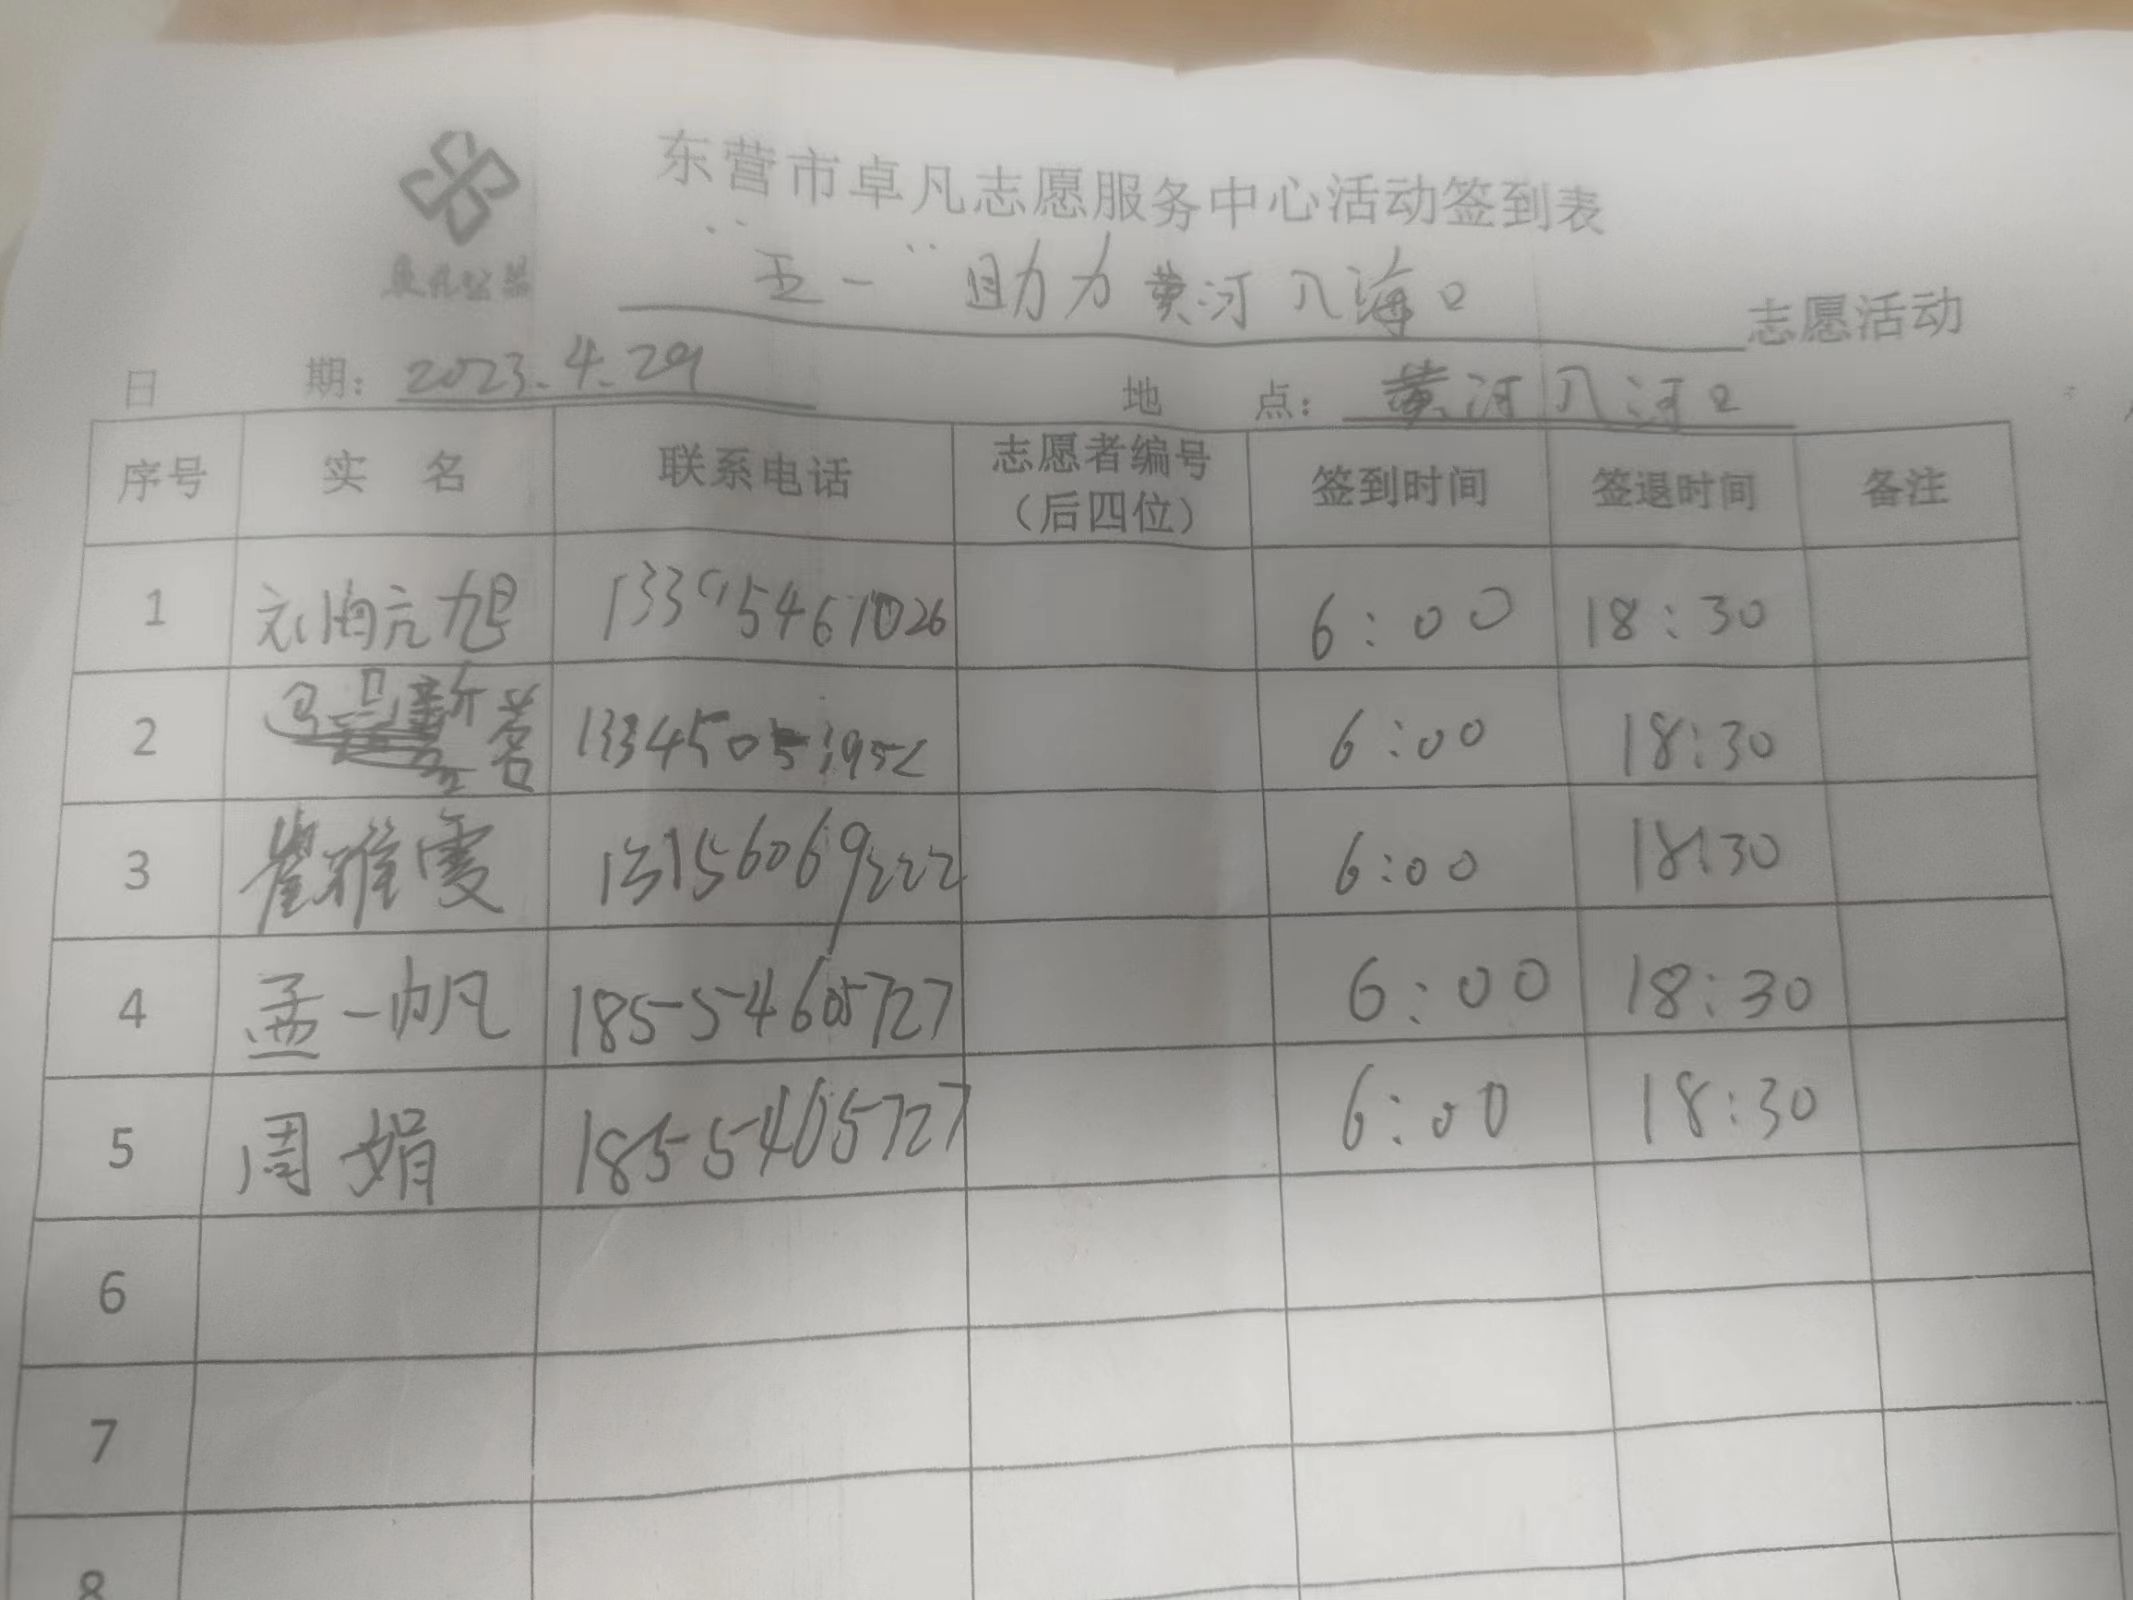 东营市卓凡志愿服务中心活动签到表
卓凡公益
“五一”助力黄河入海口 志愿活动
日 期：2023.4.29 地 点：黄河入河口
序号 实 名 联系电话 志愿者编号（后四位） 签到时间 签退时间 备注
1 旭 13395461026 6:00 18:30
2 6:00 18:30
3 崔雅雯 13156069222 6:00 18:30
4 孟一帆 18554605727 6:00 18:30
5 周娟 1855405727 6:00 18:30
6
7
8